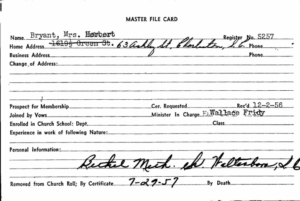 MASTER FILE CARD
Name Bryant, Mrs. Herbert Register No. 5257
Home Address 1619½ Green St. 63 Ashley St. Charleston, S.C. Phone
Business Address Phone
Change of Address:
Prospect for Membership Cor. Requested Rec'd 12-2-56
Joined by Vows Minister In Charge F. Wallace Fridy
Enrolled in Church School: Dept. Class
Experience in work of following Nature:
Personal Information:
Bethel Meth. ch. Walterboro, S.C
Removed from Church Roll; By Certificate 7-29-57 By Death